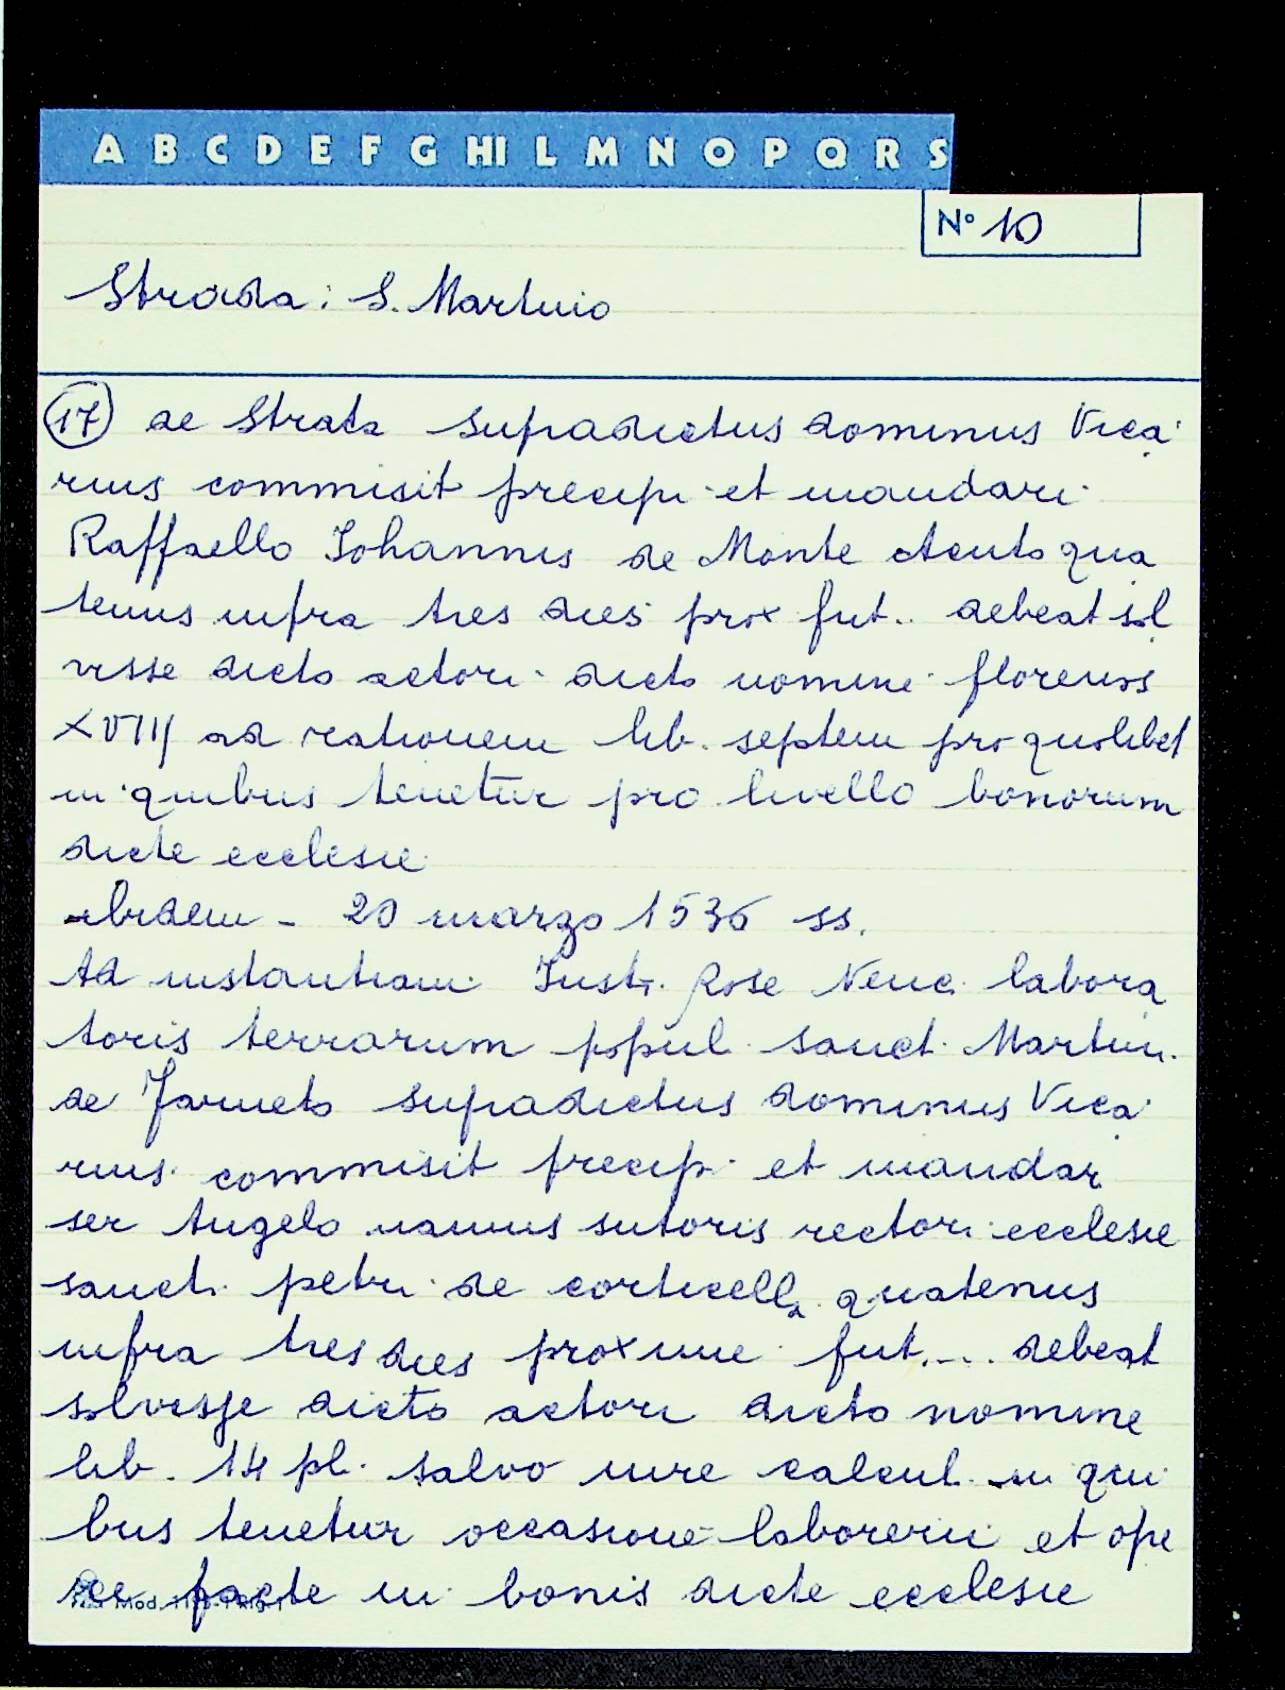 A B C D E F G HI L M N O P Q R S
N° 10
Strada: S. Martino
17 de Strata supradictus dominus Vica
rius commisit precipi et mandari
Raffaello Johannis de Monte Acuto qua
tenus infra tres dies prox fut.. debeat sol
visse dicto actori dicto nomine florenos
XVIIJ ad rationem lib. septem pro quolibet
in quibus tenetur pro livello bonorum
dicte ecclesie
- ibidem - 20 marzo 1536 ss.
Ad instantiam Rose labora
toris terrarum popul. sanct. Martin.
de supradictus dominus Vica
rius commisit precip. et mandar
ser Angelo sutoris rectori ecclesie
sancti petri de corticella quatenus
infra tres dies proxime fut.... debeat
solvisse dicto actori dicto nomine
lib. 14 pl. salvo iure calcul. in qui
bus tenetur occasione laborerii et ope
facte in bonis dicte ecclesie
Mod.